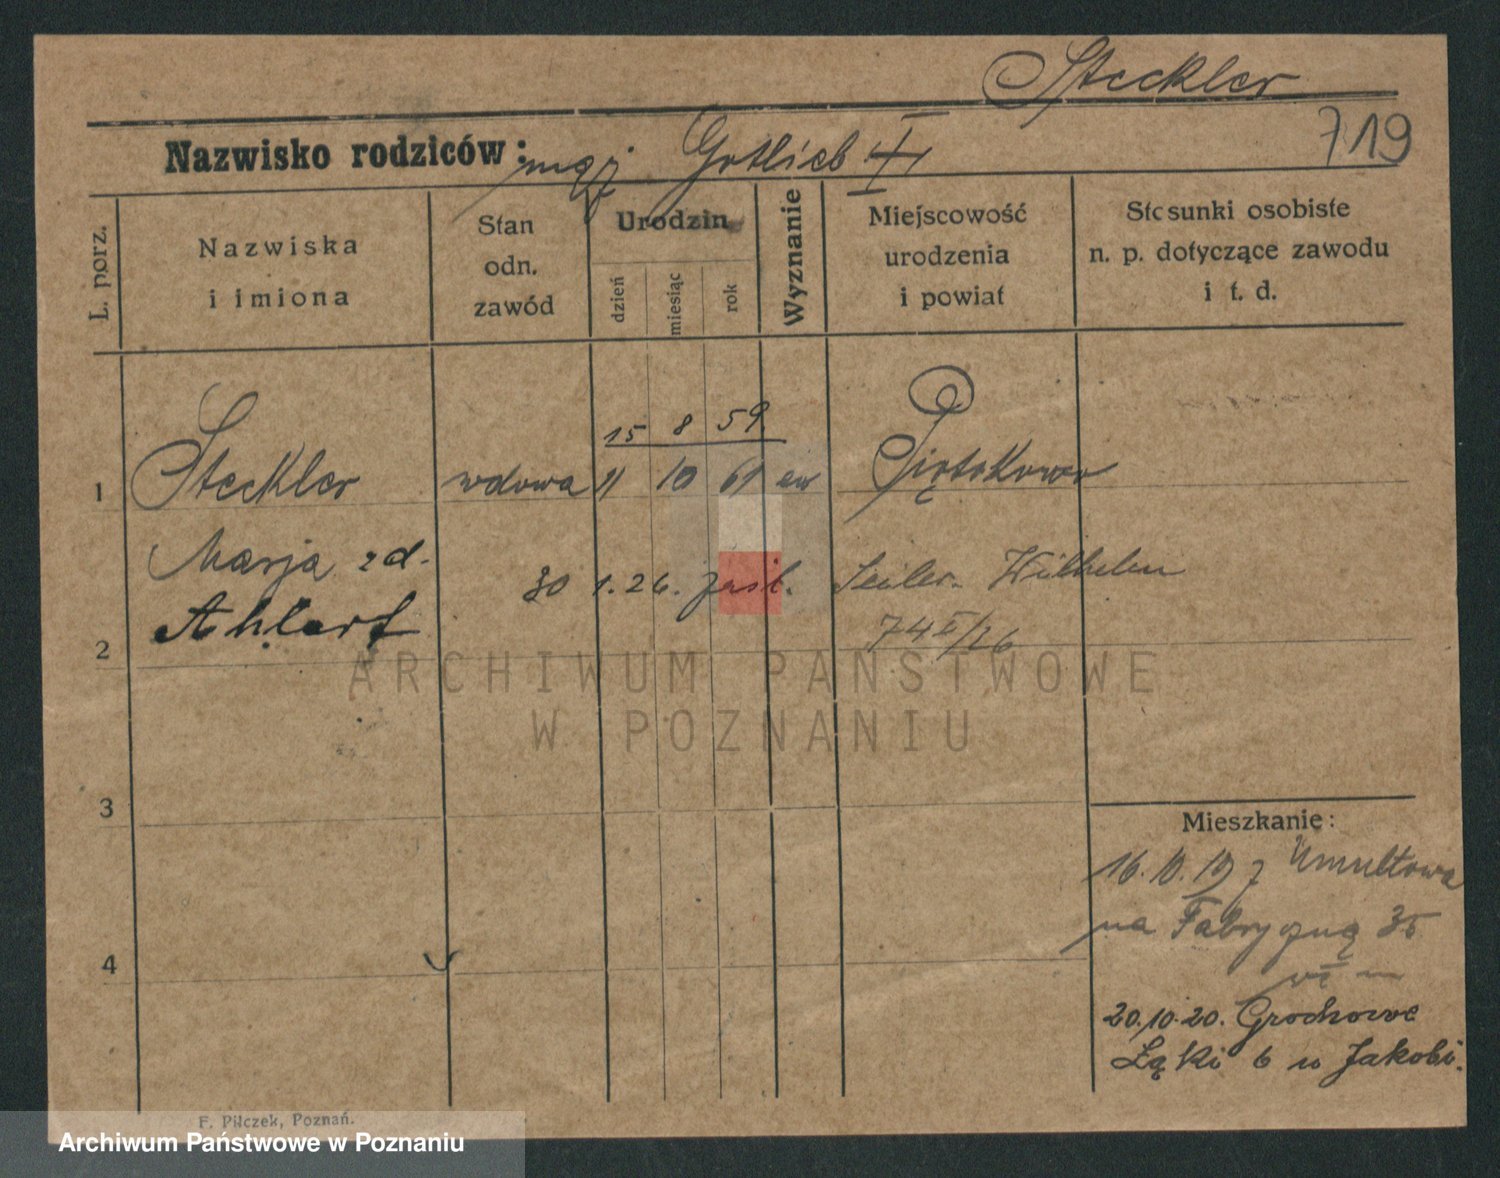 Steckler
719
Nazwisko rodziców: mąż Gotlieb
L. porz.
Nazwiska
i imiona
Stan
odn.
zawód
Urodzin
dzień
miesiąc
rok
Wyznanie
Miejscowość
urodzenia
i powiat
Stosunki osobiste
n. p. dotyczące zawodu
i t. d.
15 8 59
1 Steckler wdowa 11 10 61 ew
Marja zd.
30 1. 26. Seiler Wilhelm
Ahlert
74 I/26
2
3
4
Mieszkanie:
16.10.19 z Umultowa
na Fabryczną 35
20.10.20. Grochowe
Łąki 6 u Jakobi.
F. Pilczek, Poznań.
ARCHIWUM PAŃSTWOWE
W POZNANIU
Archiwum Państwowe w Poznaniu